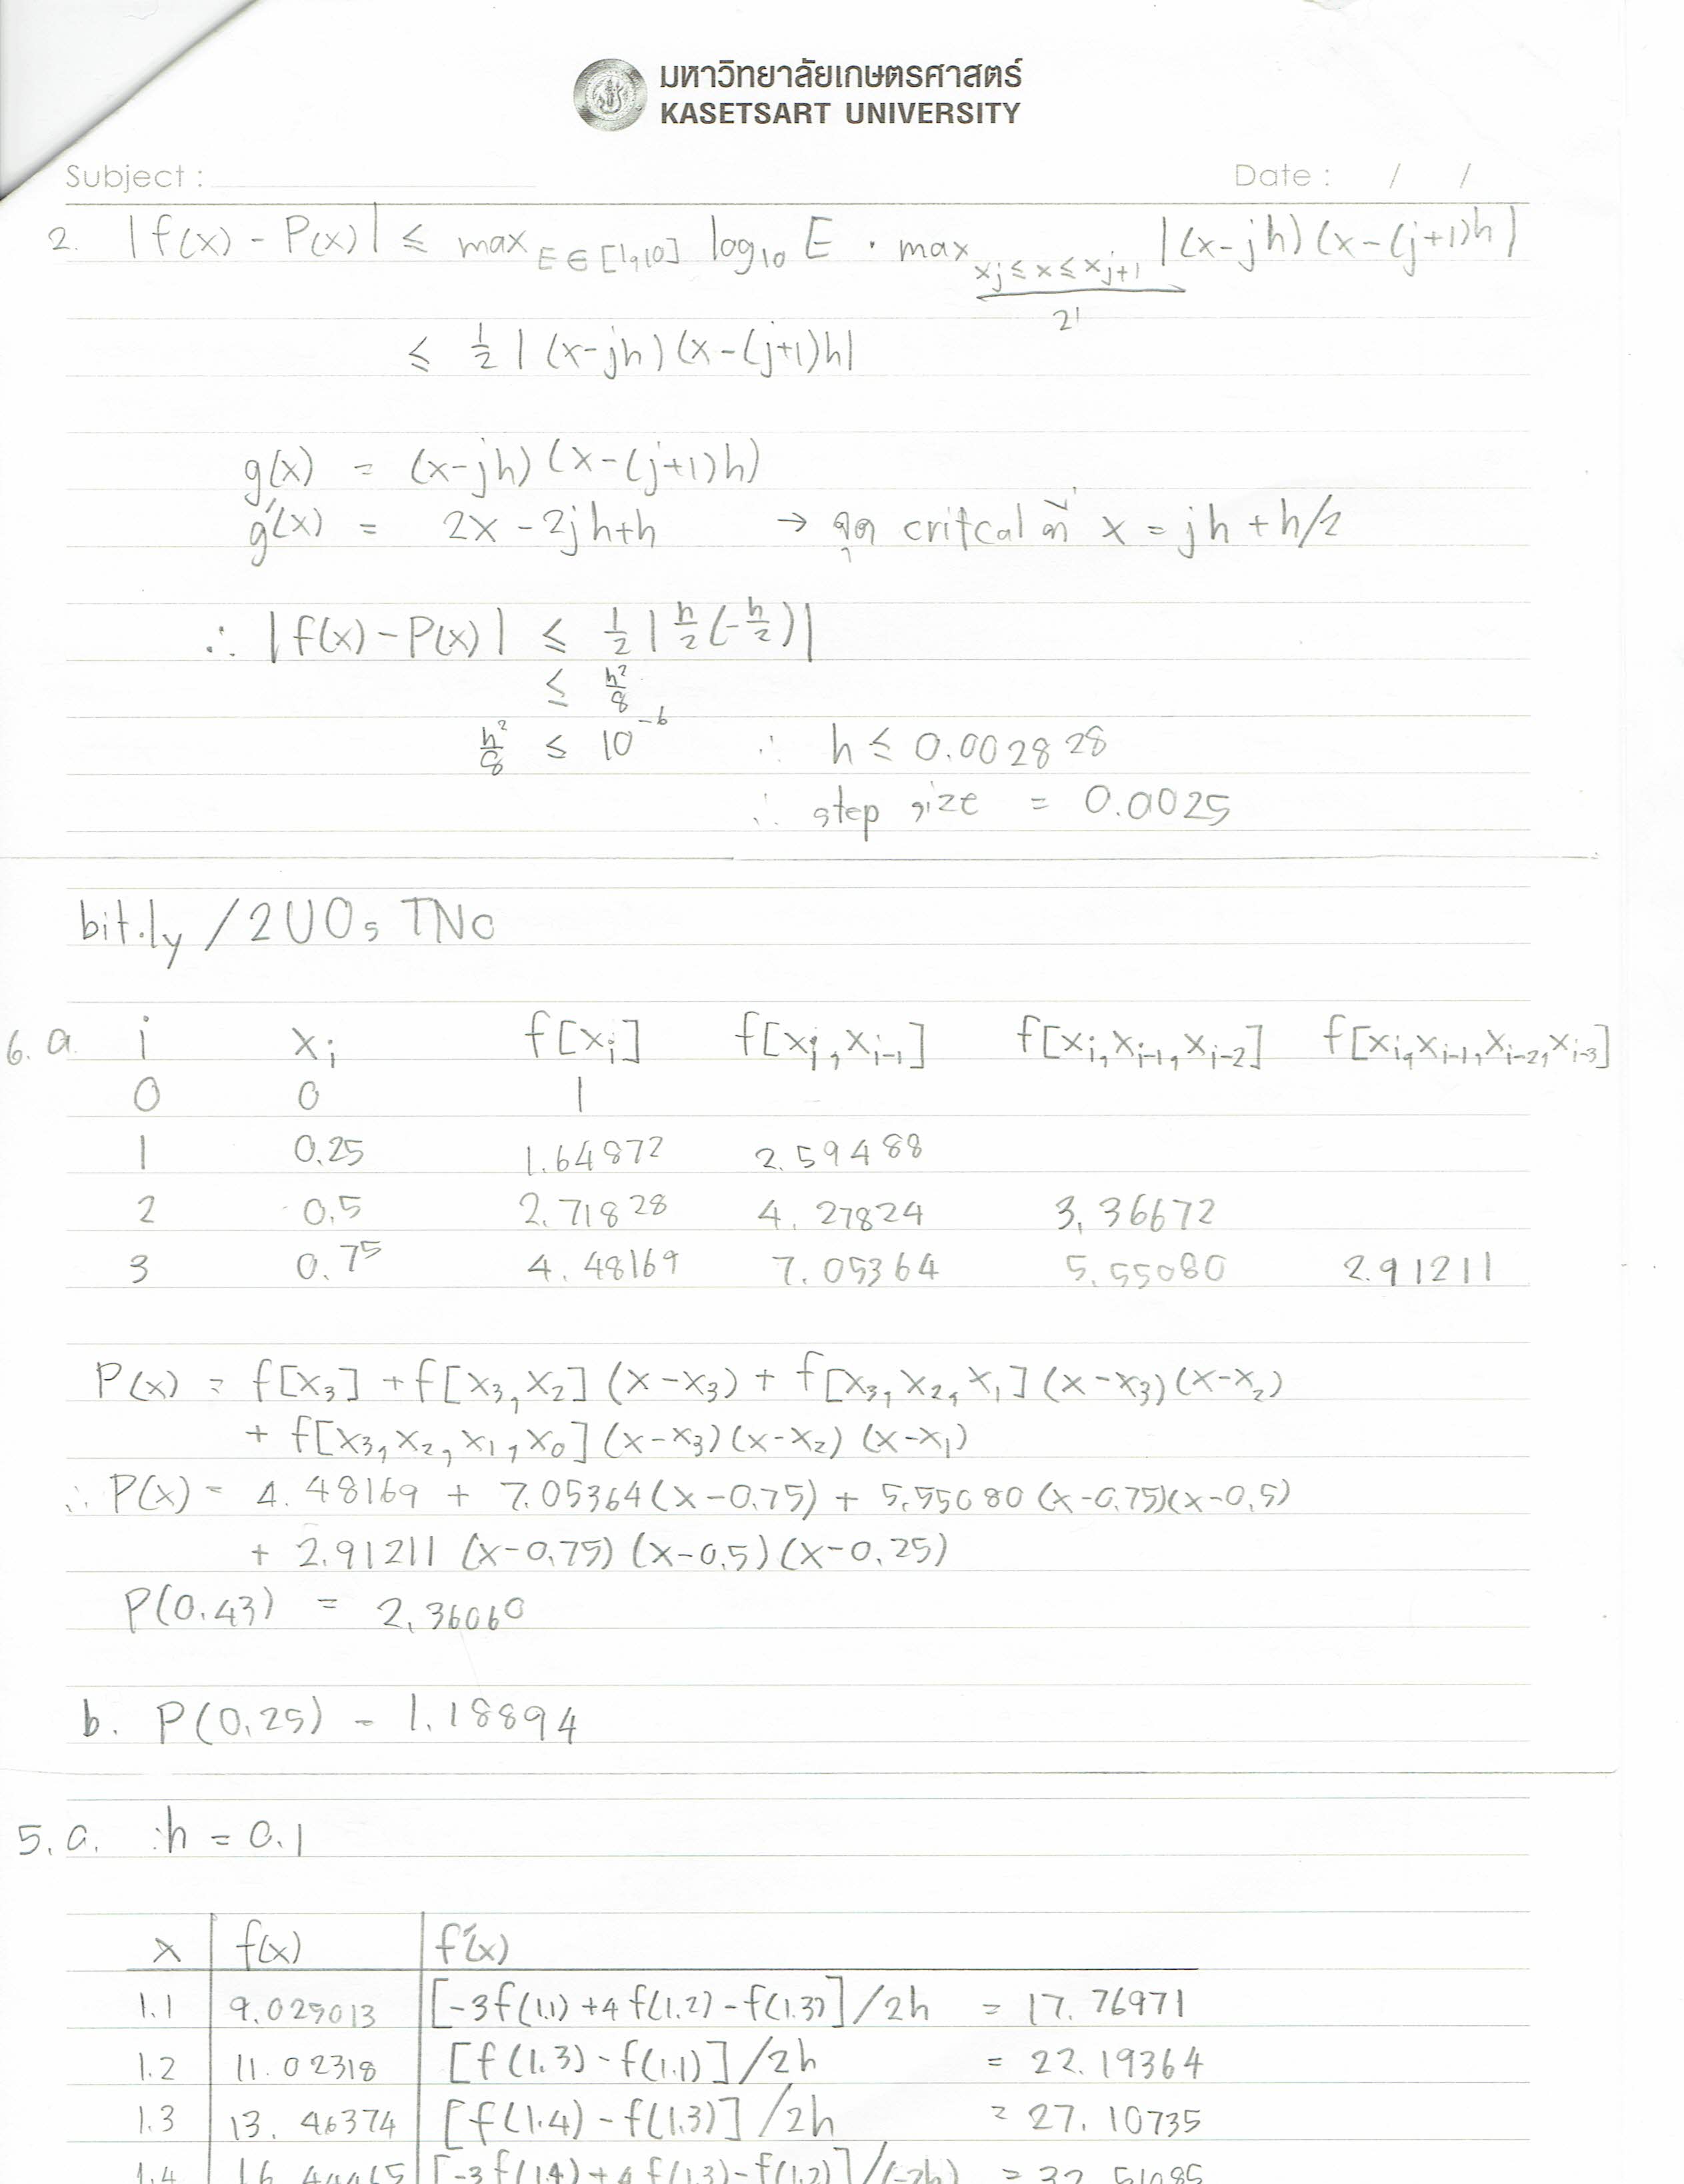 มหาวิทยาลัยเกษตรศาสตร์
KASETSART UNIVERSITY
Subject : Date : / /
2. |f(x) - P(x)| ≤ max E∈[1,10] log₁₀ E · max xⱼ≤x≤xⱼ₊₁ |(x-jh)(x-(j+1)h|
2!
≤ ½|(x-jh)(x-(j+1)h|
g(x) = (x-jh)(x-(j+1)h)
g'(x) = 2x - 2jh+h → จุด critcal ที่ x = jh + h/2
∴ |f(x) - P(x)| ≤ ½|h/2(-h/2)|
≤ h²/8
h²/8 ≤ 10⁻⁶ ∴ h ≤ 0.002828
∴ step size = 0.0025
bit.ly/2UOsTNc
6. a i xᵢ f[xᵢ] f[xᵢ, xᵢ₋₁] f[xᵢ, xᵢ₋₁, xᵢ₋₂] f[xᵢ, xᵢ₋₁, xᵢ₋₂, xᵢ₋₃]
0 0 1
1 0.25 1.64872 2.59488
2 0.5 2.71828 4.27824 3.36672
3 0.75 4.48169 7.05364 5.55080 2.91211
P(x) = f[x₃] + f[x₃, x₂](x-x₃) + f[x₃, x₂, x₁](x-x₃)(x-x₂)
+ f[x₃, x₂, x₁, x₀](x-x₃)(x-x₂)(x-x₁)
∴ P(x) = 4.48169 + 7.05364(x-0.75) + 5.55080(x-0.75)(x-0.5)
+ 2.91211(x-0.75)(x-0.5)(x-0.25)
P(0.43) = 2.36060
b. P(0.25) = 1.18894
5. a. h = 0.1
x f(x) f'(x)
1.1 9.025013 [-3f(1.1)+4f(1.2)-f(1.3)]/2h = 17.76971
1.2 11.02318 [f(1.3)-f(1.1)]/2h = 22.19364
1.3 13.46374 [f(1.4)-f(1.3)]/2h = 27.10735
1.4 16.44465 [-3f(1.4)+4f(1.3)-f(1.2)]/(-2h) = 32.51085